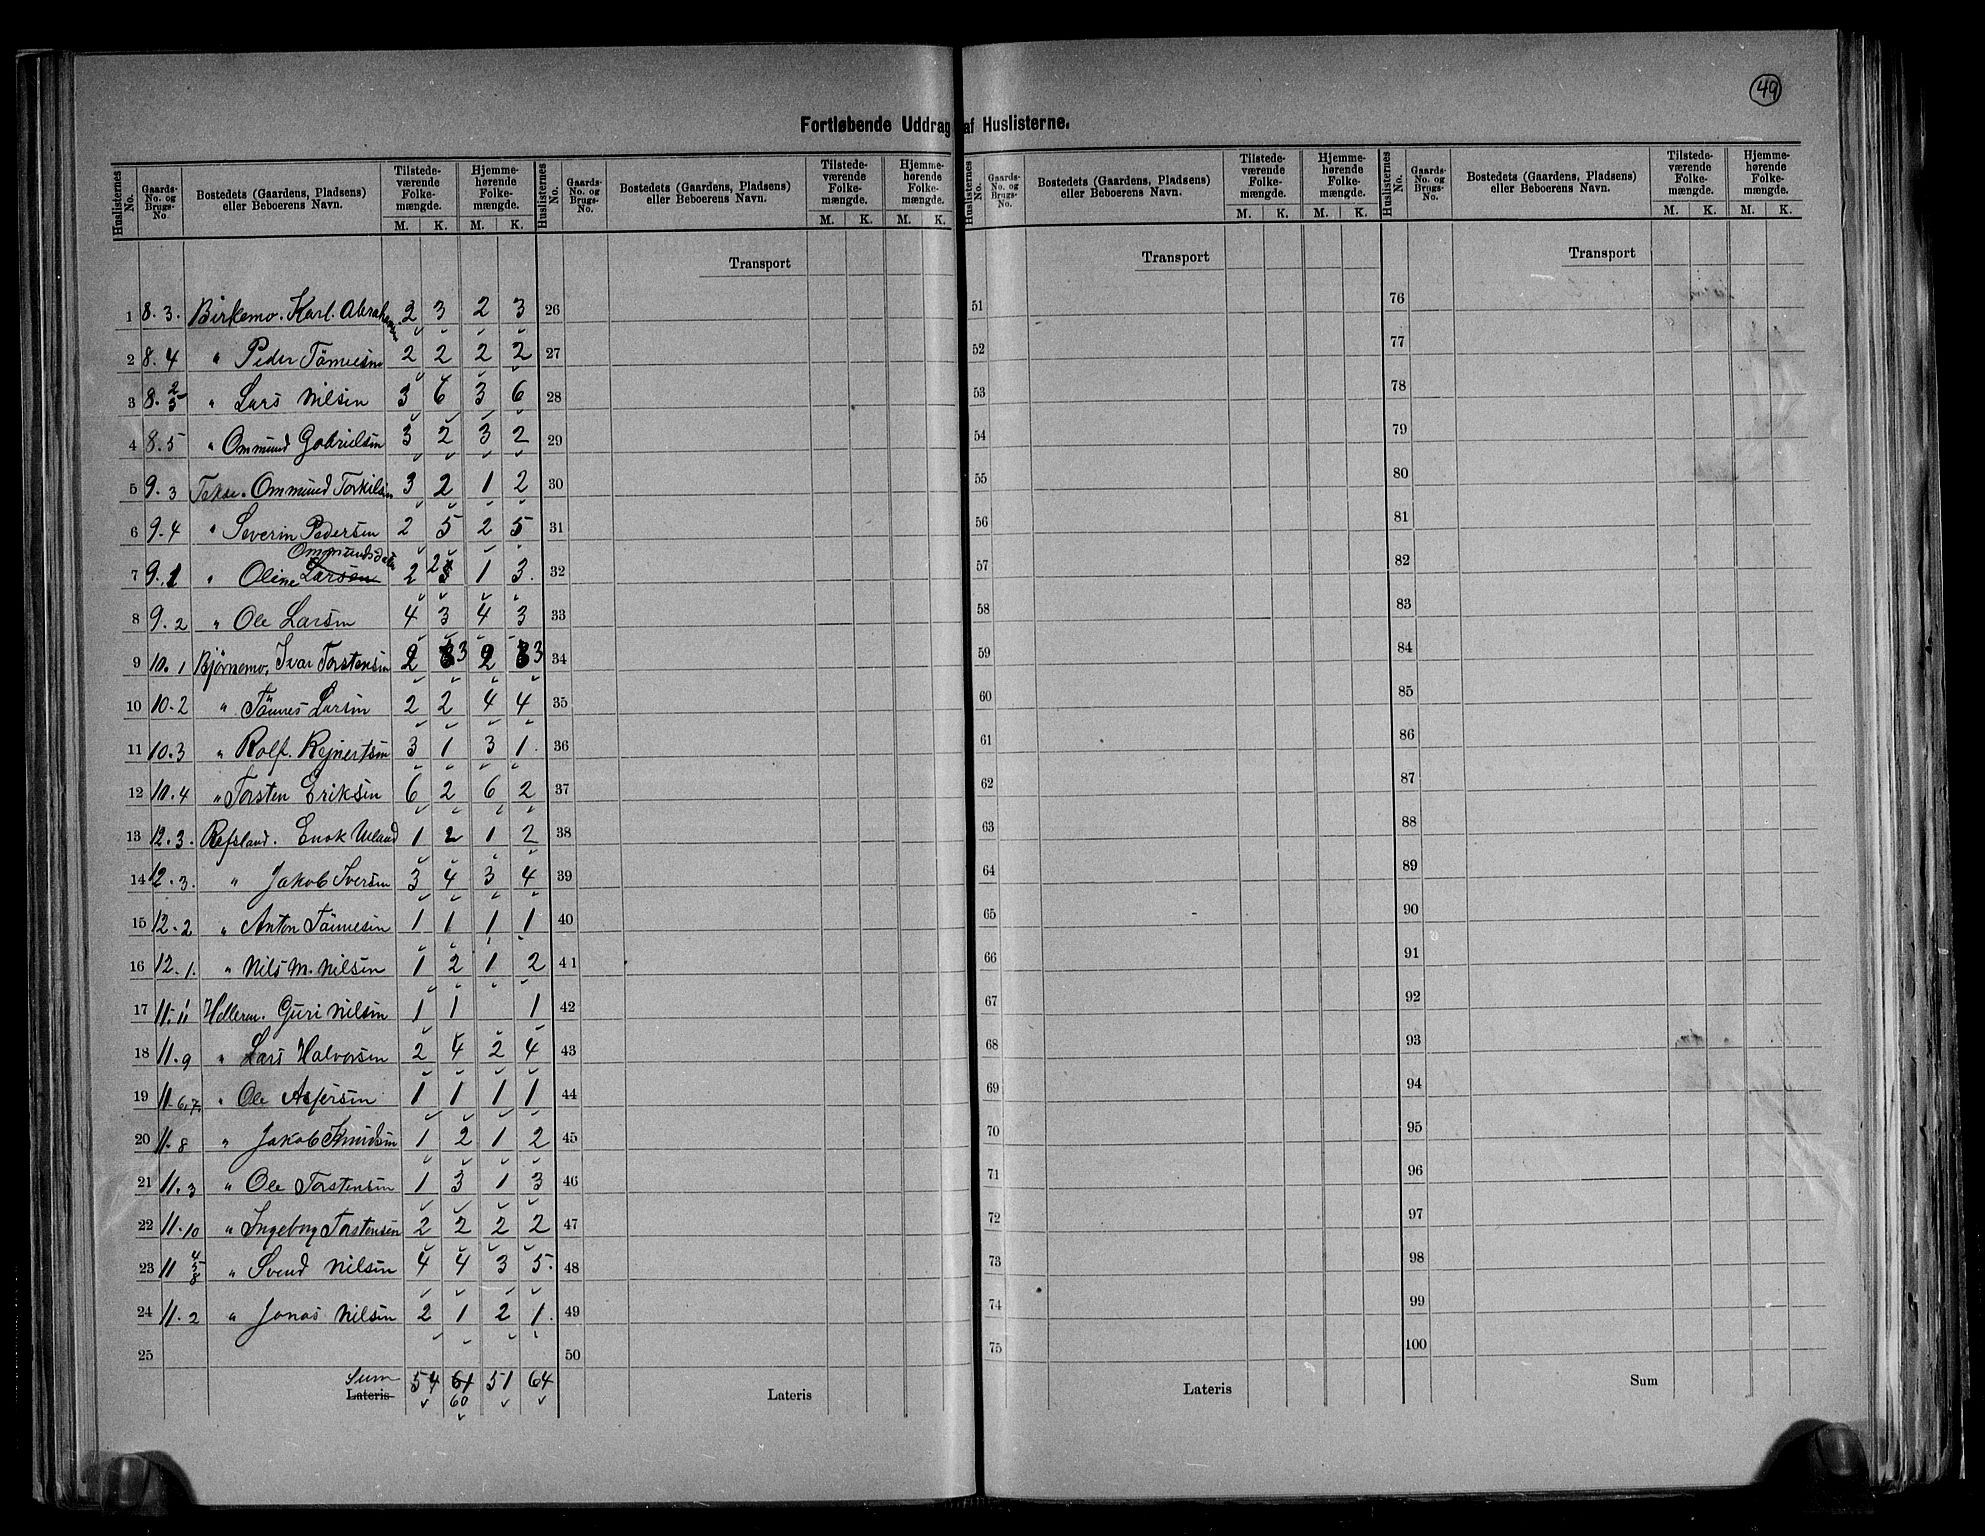 49
Fortløbende Uddrag af Huslisterne.
Huslisternes No. Gaards-No. og Brugs-No. Bostedets (Gaardens, Pladsens) eller Beboerens Navn. Tilstedeværende Folkemængde. M. K. Hjemmehørende Folkemængde. M. K.
Huslisternes No. Gaards-No. og Brugs-No. Bostedets (Gaardens, Pladsens) eller Beboerens Navn. Tilstedeværende Folkemængde. M. K. Hjemmehørende Folkemængde. M. K.
Huslisternes No. Gaards-No. og Brugs-No. Bostedets (Gaardens, Pladsens) eller Beboerens Navn. Tilstedeværende Folkemængde. M. K. Hjemmehørende Folkemængde. M. K.
Huslisternes No. Gaards-No. og Brugs-No. Bostedets (Gaardens, Pladsens) eller Beboerens Navn. Tilstedeværende Folkemængde. M. K. Hjemmehørende Folkemængde. M. K.
Transport Transport Transport
1 8. 3. Birkemo. Karl. Abrahamsen 2 3 2 3 26 51 76
2 8. 4 " Peder Tönnesen 2 2 2 2 27 52 77
3 8. 2/5 " Lars Nilsen 3 6 3 6 28 53 78
4 8. 5 " Ommund Gabrielsen 3 2 3 2 29 54 79
5 9. 3 Tekse. Ommund Torkilsen 3 2 1 2 30 55 80
6 9. 4 " Severin Pedersen 2 5 2 5 31 56 81
Ommundsdatter
7 9. 1 " Oline Larsen 2 2 3 1 3. 32 57 82
8 9. 2 " Ole Larsen 4 3 4 3 33 58 83
9 10. 1 Bjørnemo, Ivar Torstensen 2 3 2 3 34 59 84
10 10. 2 " Tönnes Larsen 2 2 4 4 35 60 85
11 10. 3 " Rolf. Rejnertsen 3 1 3 1. 36 61 86
12 10. 4 " Torsten Eriksen 6 2 6 2 37 62 87
13 12. 3. Refsland. Enok Ueland 1 2 1 2 38 63 88
14 12. 3. " Jakob Iversen 3 4 3 4 39 64 89
15 12. 2 " Anton Tönnesen 1 1 1 1 40 65 90
16 12. 1. " Nils M. Nilsen 1 2 1 2 41 66 91
17 11. 11 Helleren. Guri Nilsen 1 1 1 42 67 92
18 11. 9 " Lars Halvorsen 2 4 2 4 43 68 93
19 11. 6,7. " Ole Asjersen 1 1 1 1 44 69 94
20 11. 8 " Jakob Knudsen 1 2 1 2 45 70 95
21 11. 3 " Ole Torstensen 1 3 1 3 46 71 96
22 11. 10 " Ingeborg Torstensen 2 2 2 2 47 72 97
23 11 4 5 8 " Svend Nilsen 4 4 3 5. 48 73 98
24 11. 2 " Jonas Nilsen 2 1 2 1. 49 74 99
25 50 75 100
Sum 54 61 51 64
Lateris 60 Lateris Lateris Sum